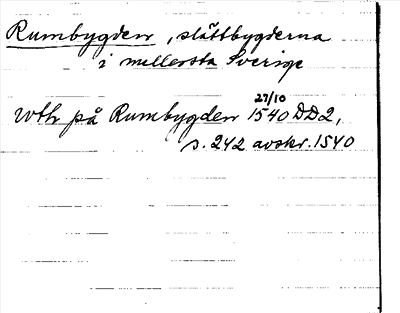 Rumbygden, slättbygderna
i mellersta Sverige
27/10
wth på Rumbygden 1540 DD2,
s. 242 avskr. 1540